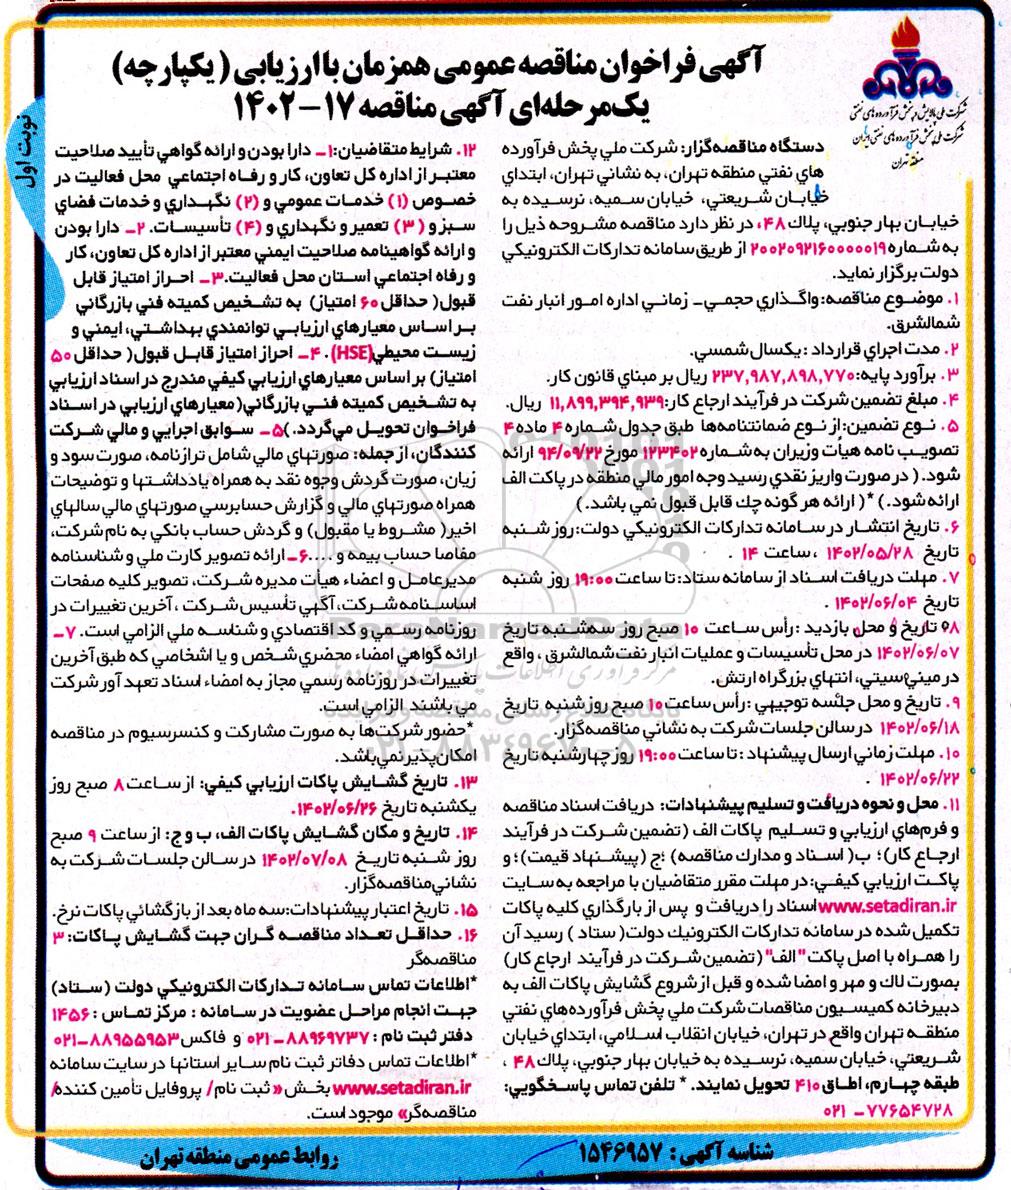 آگهی فراخوان مناقصه عمومی همزمان با ارزیابی (یکپارچه)
یک‌مرحله‌ای آگهی مناقصه ۱۷-۱۴۰۲
شرکت ملی پالایش و پخش فرآورده های نفتی
شرکت ملی پخش فرآورده های نفتی ایران
منطقه تهران
نوبت اول
دستگاه مناقصه‌گزار: شرکت ملي پخش فرآورده
هاي نفتي منطقه تهران، به نشاني تهران، ابتداي
خيابان شريعتي، خيابان سميه، نرسيده به
خيابان بهار جنوبي، پلاك ۴۸، در نظر دارد مناقصه مشروحه ذيل را
به شماره ۲۰۰۲۰۹۲۱۶۰۰۰۰۰۱۹ از طريق سامانه تداركات الكترونيكي
دولت برگزار نمايد.
۱. موضوع مناقصه: واگذاري حجمي- زماني اداره امور انبار نفت
شمالشرق.
۲. مدت اجراي قرارداد : يكسال شمسي.
۳. برآورد پايه: ۲۳۷,۹۸۷,۸۹۸,۷۷۰ ريال بر مبناي قانون كار.
۴. مبلغ تضمين شركت در فرآيند ارجاع كار: ۱۱,۸۹۹,۳۹۴,۹۳۹ ريال.
۵. نوع تضمين: از نوع ضمانتنامه‌ها طبق جدول شماره ۴ ماده ۴
تصويب نامه هيأت وزيران به شماره ۱۲۳۴۰۲ مورخ ۹۴/۰۹/۲۲ ارائه
شود. ( در صورت واريز نقدي رسيد وجه امور مالي منطقه در پاكت الف
ارائه شود.) *( ارائه هر گونه چك قابل قبول نمي باشد.)
۶. تاريخ انتشار در سامانه تداركات الكترونيكي دولت: روز شنبه
تاريخ ۱۴۰۲/۰۵/۲۸ ، ساعت ۱۴ .
۷. مهلت دريافت اسناد از سامانه ستاد: تا ساعت ۱۹:۰۰ روز شنبه
تاريخ ۱۴۰۲/۰۶/۰۴ .
۸. تاريخ و محل بازديد : رأس ساعت ۱۰ صبح روز سه‌شنبه تاريخ
۱۴۰۲/۰۶/۰۷ در محل تأسيسات و عمليات انبار نفت شمالشرق ، واقع
در ميني‌سيتي، انتهاي بزرگراه ارتش.
۹. تاريخ و محل جلسه توجيهي : رأس ساعت ۱۰ صبح روز شنبه تاريخ
۱۴۰۲/۰۶/۱۸ در سالن جلسات شركت به نشاني مناقصه‌گزار.
۱۰. مهلت زماني ارسال پيشنهاد : تا ساعت ۱۹:۰۰ روز چهارشنبه تاريخ
۱۴۰۲/۰۶/۲۲ .
۱۱. محل و نحوه دريافت و تسليم پيشنهادات: دريافت اسناد مناقصه
و فرم‌هاي ارزيابي و تسليم پاكات الف (تضمين شركت در فرآيند
ارجاع كار)؛ ب( اسناد و مدارك مناقصه) ؛ج (پيشنهاد قيمت)؛ و
پاكت ارزيابي كيفي: در مهلت مقرر متقاضيان با مراجعه به سايت
www.setadiran.ir اسناد را دريافت و پس از بارگذاري كليه پاكات
تكميل شده در سامانه تداركات الكترونيك دولت( ستاد ) رسيد آن
را همراه با اصل پاكت "الف" (تضمين شركت در فرآيند ارجاع كار)
بصورت لاك و مهر و امضا شده و قبل از شروع گشايش پاكات الف به
دبيرخانه كميسيون مناقصات شركت ملي پخش فرآورده‌هاي نفتي
منطقه تهران واقع در تهران، خيابان انقلاب اسلامي، ابتداي خيابان
شريعتي، خيابان سميه، نرسيده به خيابان بهار جنوبي، پلاك ۴۸ ،
طبقه چهارم، اطاق ۴۱۰ تحويل نمايند. * تلفن تماس پاسخگويي:
۷۷۶۵۴۷۲۸ - ۰۲۱
۱۲. شرايط متقاضيان: ۱- دارا بودن و ارائه گواهي تأييد صلاحيت
معتبر از اداره كل تعاون، كار و رفاه اجتماعي محل فعاليت در
خصوص (۱) خدمات عمومي و (۲) نگهداري و خدمات فضاي
سبز و (۳) تعمير و نگهداري و (۴) تأسيسات. ۲- دارا بودن
و ارائه گواهينامه صلاحيت ايمني معتبر از اداره كل تعاون، كار
و رفاه اجتماعي استان محل فعاليت. ۳- احراز امتياز قابل
قبول( حداقل ۶۰ امتياز) به تشخيص كميته فني بازرگاني
بر اساس معيارهاي ارزيابي توانمندي بهداشتي، ايمني و
زيست محيطي (HSE). ۴- احراز امتياز قابل قبول( حداقل ۵۰
امتياز) بر اساس معيارهاي ارزيابي كيفي مندرج در اسناد ارزيابي
به تشخيص كميته فني بازرگاني(معيارهاي ارزيابي در اسناد
فراخوان تحويل مي‌گردد.) ۵- سوابق اجرايي و مالي شركت
كنندگان، از جمله: صورتهاي مالي شامل ترازنامه، صورت سود و
زيان، صورت گردش وجوه نقد به همراه يادداشتها و توضيحات
همراه صورتهاي مالي و گزارش حسابرسي صورتهاي مالي سالهاي
اخير( مشروط يا مقبول) و گردش حساب بانكي به نام شركت،
مفاصا حساب بيمه و .... ۶- ارائه تصوير كارت ملي و شناسنامه
مديرعامل و اعضاء هيأت مديره شركت، تصوير كليه صفحات
اساسنامه شركت، آگهي تأسيس شركت ، آخرين تغييرات در
روزنامه رسمي و كد اقتصادي و شناسه ملي الزامي است. ۷-
ارائه گواهي امضاء محضري شخص و يا اشخاصي كه طبق آخرين
تغييرات در روزنامه رسمي مجاز به امضاء اسناد تعهد آور شركت
مي باشند الزامي است.
*حضور شركت‌ها به صورت مشاركت و كنسرسيوم در مناقصه
امكان‌پذير نمي‌باشد.
۱۳. تاريخ گشايش پاكات ارزيابي كيفي: از ساعت ۸ صبح روز
يكشنبه تاريخ ۱۴۰۲/۰۶/۲۶.
۱۴. تاريخ و مكان گشايش پاكات الف، ب و ج: از ساعت ۹ صبح
روز شنبه تاريخ ۱۴۰۲/۰۷/۰۸ در سالن جلسات شركت به
نشاني مناقصه‌گزار.
۱۵. تاريخ اعتبار پيشنهادات: سه ماه بعد از بازگشائي پاكات نرخ.
۱۶. حداقل تعداد مناقصه گران جهت گشايش پاكات: ۳
مناقصه‌گر
*اطلاعات تماس سامانه تداركات الكترونيكي دولت (ستاد)
جهت انجام مراحل عضويت در سامانه : مركز تماس : ۱۴۵۶
دفتر ثبت نام : ۸۸۹۶۹۷۳۷-۰۲۱ و فاكس ۸۸۹۵۵۹۵۳-۰۲۱
*اطلاعات تماس دفاتر ثبت نام ساير استانها در سايت سامانه
www.setadiran.ir بخش « ثبت نام/ پروفايل تأمين كننده/
مناقصه‌گر» موجود است.
شناسه آگهی : ۱۵۴۶۹۵۷
روابط عمومی منطقه تهران
ParsNamadData
۰۲۱-۸۸۳۴۹۶۷۰-۵